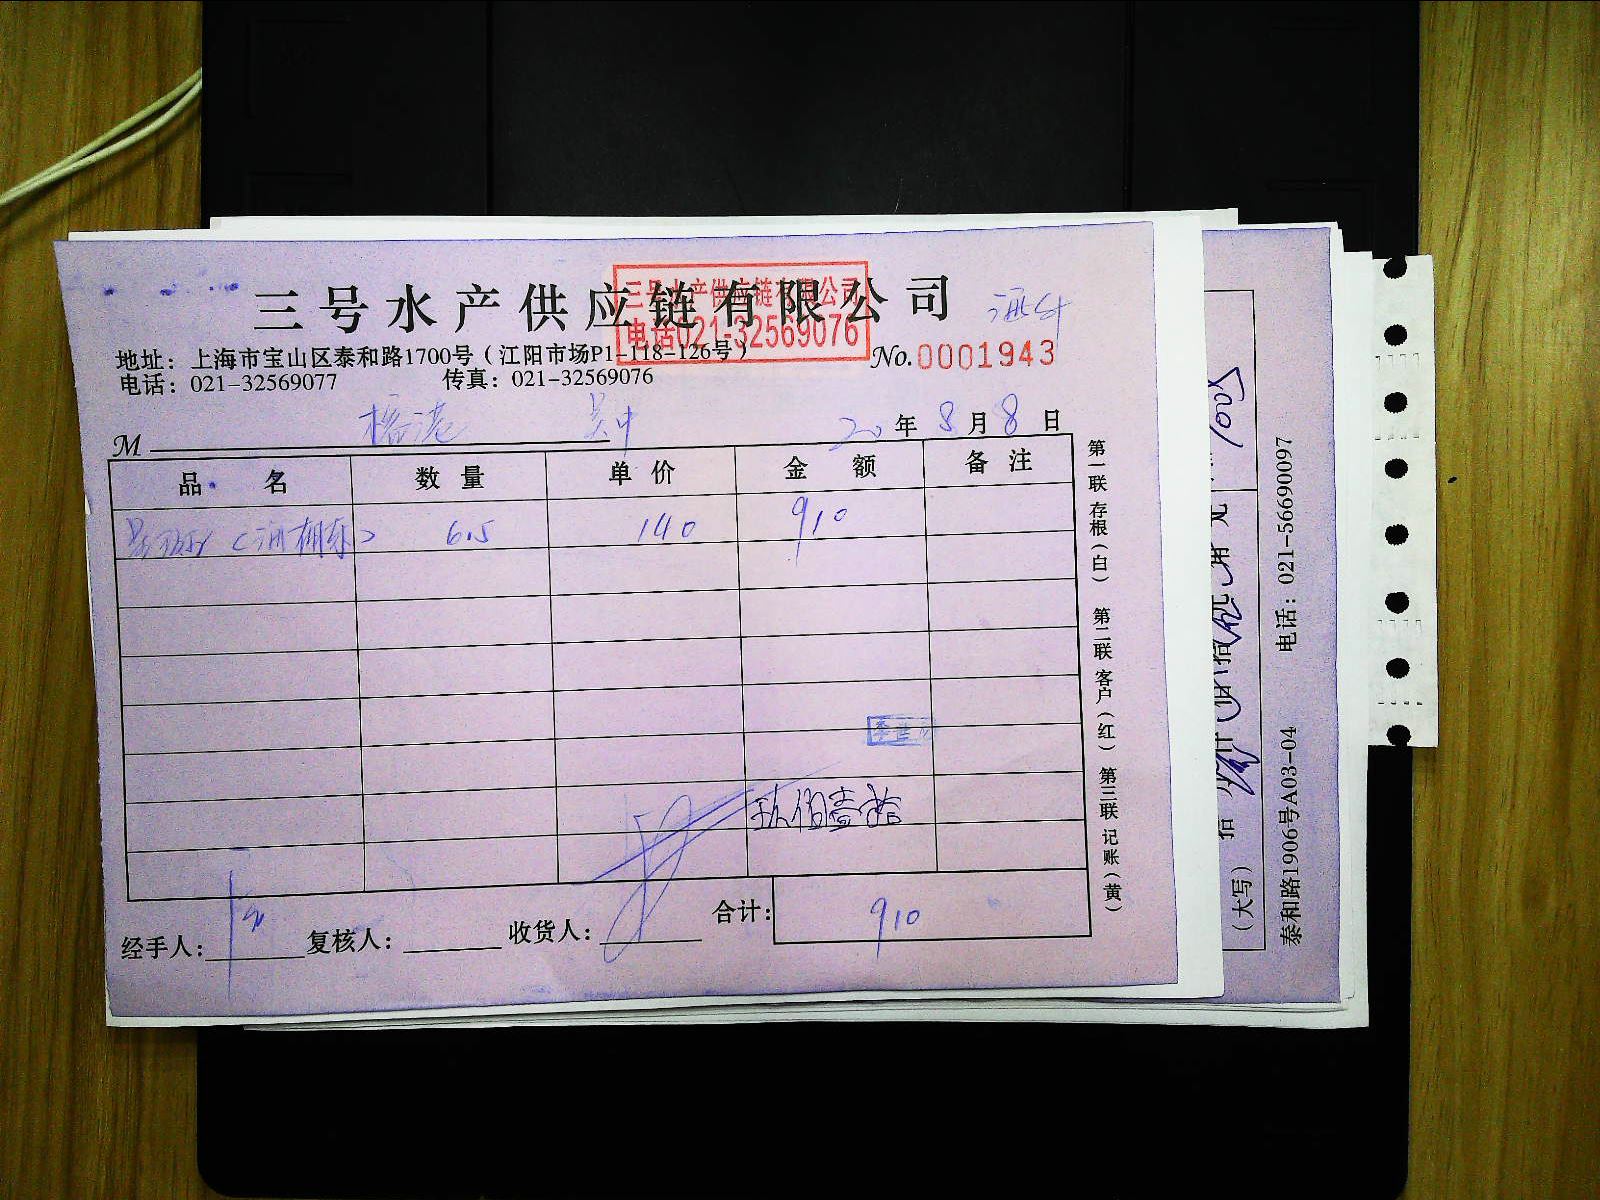 三号水产供应链有限公司
三号水产供应链有限公司
电话021-32569076
地址：上海市宝山区泰和路1700号（江阳市场P1-118-126号）
No.0001943
电话：021-32569077 传真：021-32569076
M 20年8月8日
品名 数量 单价 金额 备注
6.5 140 910
玖佰壹拾
合计：910
经手人： 复核人： 收货人：
第一联 存根（白） 第二联 客户（红） 第三联 记账（黄）
（大写）
泰和路1906号A03-04 电话：021-56690097